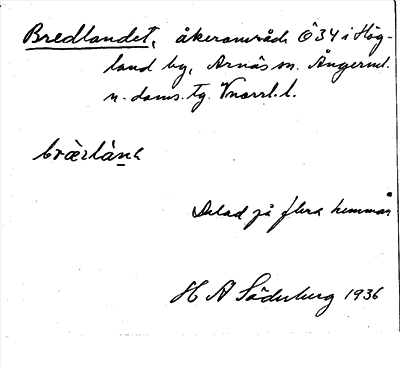 Bredlandet, åkerområde Ö34 i Hög-
land by, Arnäs sn. Ångerml.
n. doms. tg. Vnorrl. l.
Delad på flera hemman
H A Söderberg 1936